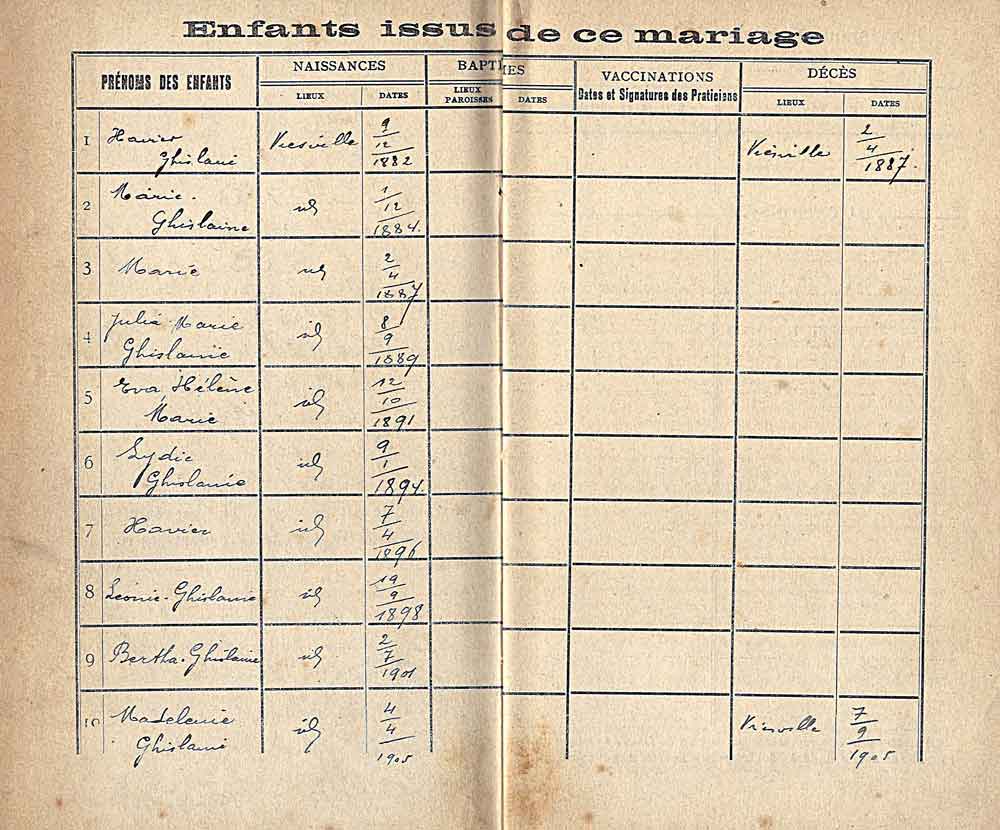 Enfants issus de ce mariage
PRÉNOMS DES ENFANTS
NAISSANCES
BAPTÊMES
VACCINATIONS
DÉCÈS
LIEUX
DATES
LIEUX
PAROISSES
DATES
Dates et Signatures des Praticiens
LIEUX
DATES
1
Xavier
Ghislain
Viesville
9
12
1882
Viesville
2
4
1887.
2
Marie-
Ghislaine
id
1
12
1884.
3
Marie
id
2
4
1887
4
Julia Marie
Ghislanie
id
8
9
1889
5
Eva, Hélène
Marie
id
12
10
1891
6
Lydie
Ghislanie
id
9
1
1894.
7
Xavier
id
7
4
1896
8
Léonie-Ghislanie
id
19
9
1898
9
Bertha-Ghislaine
id
2
7
1901
10
Madeleine
Ghislaine
id
4
4
1905
Viesville
7
9
1905